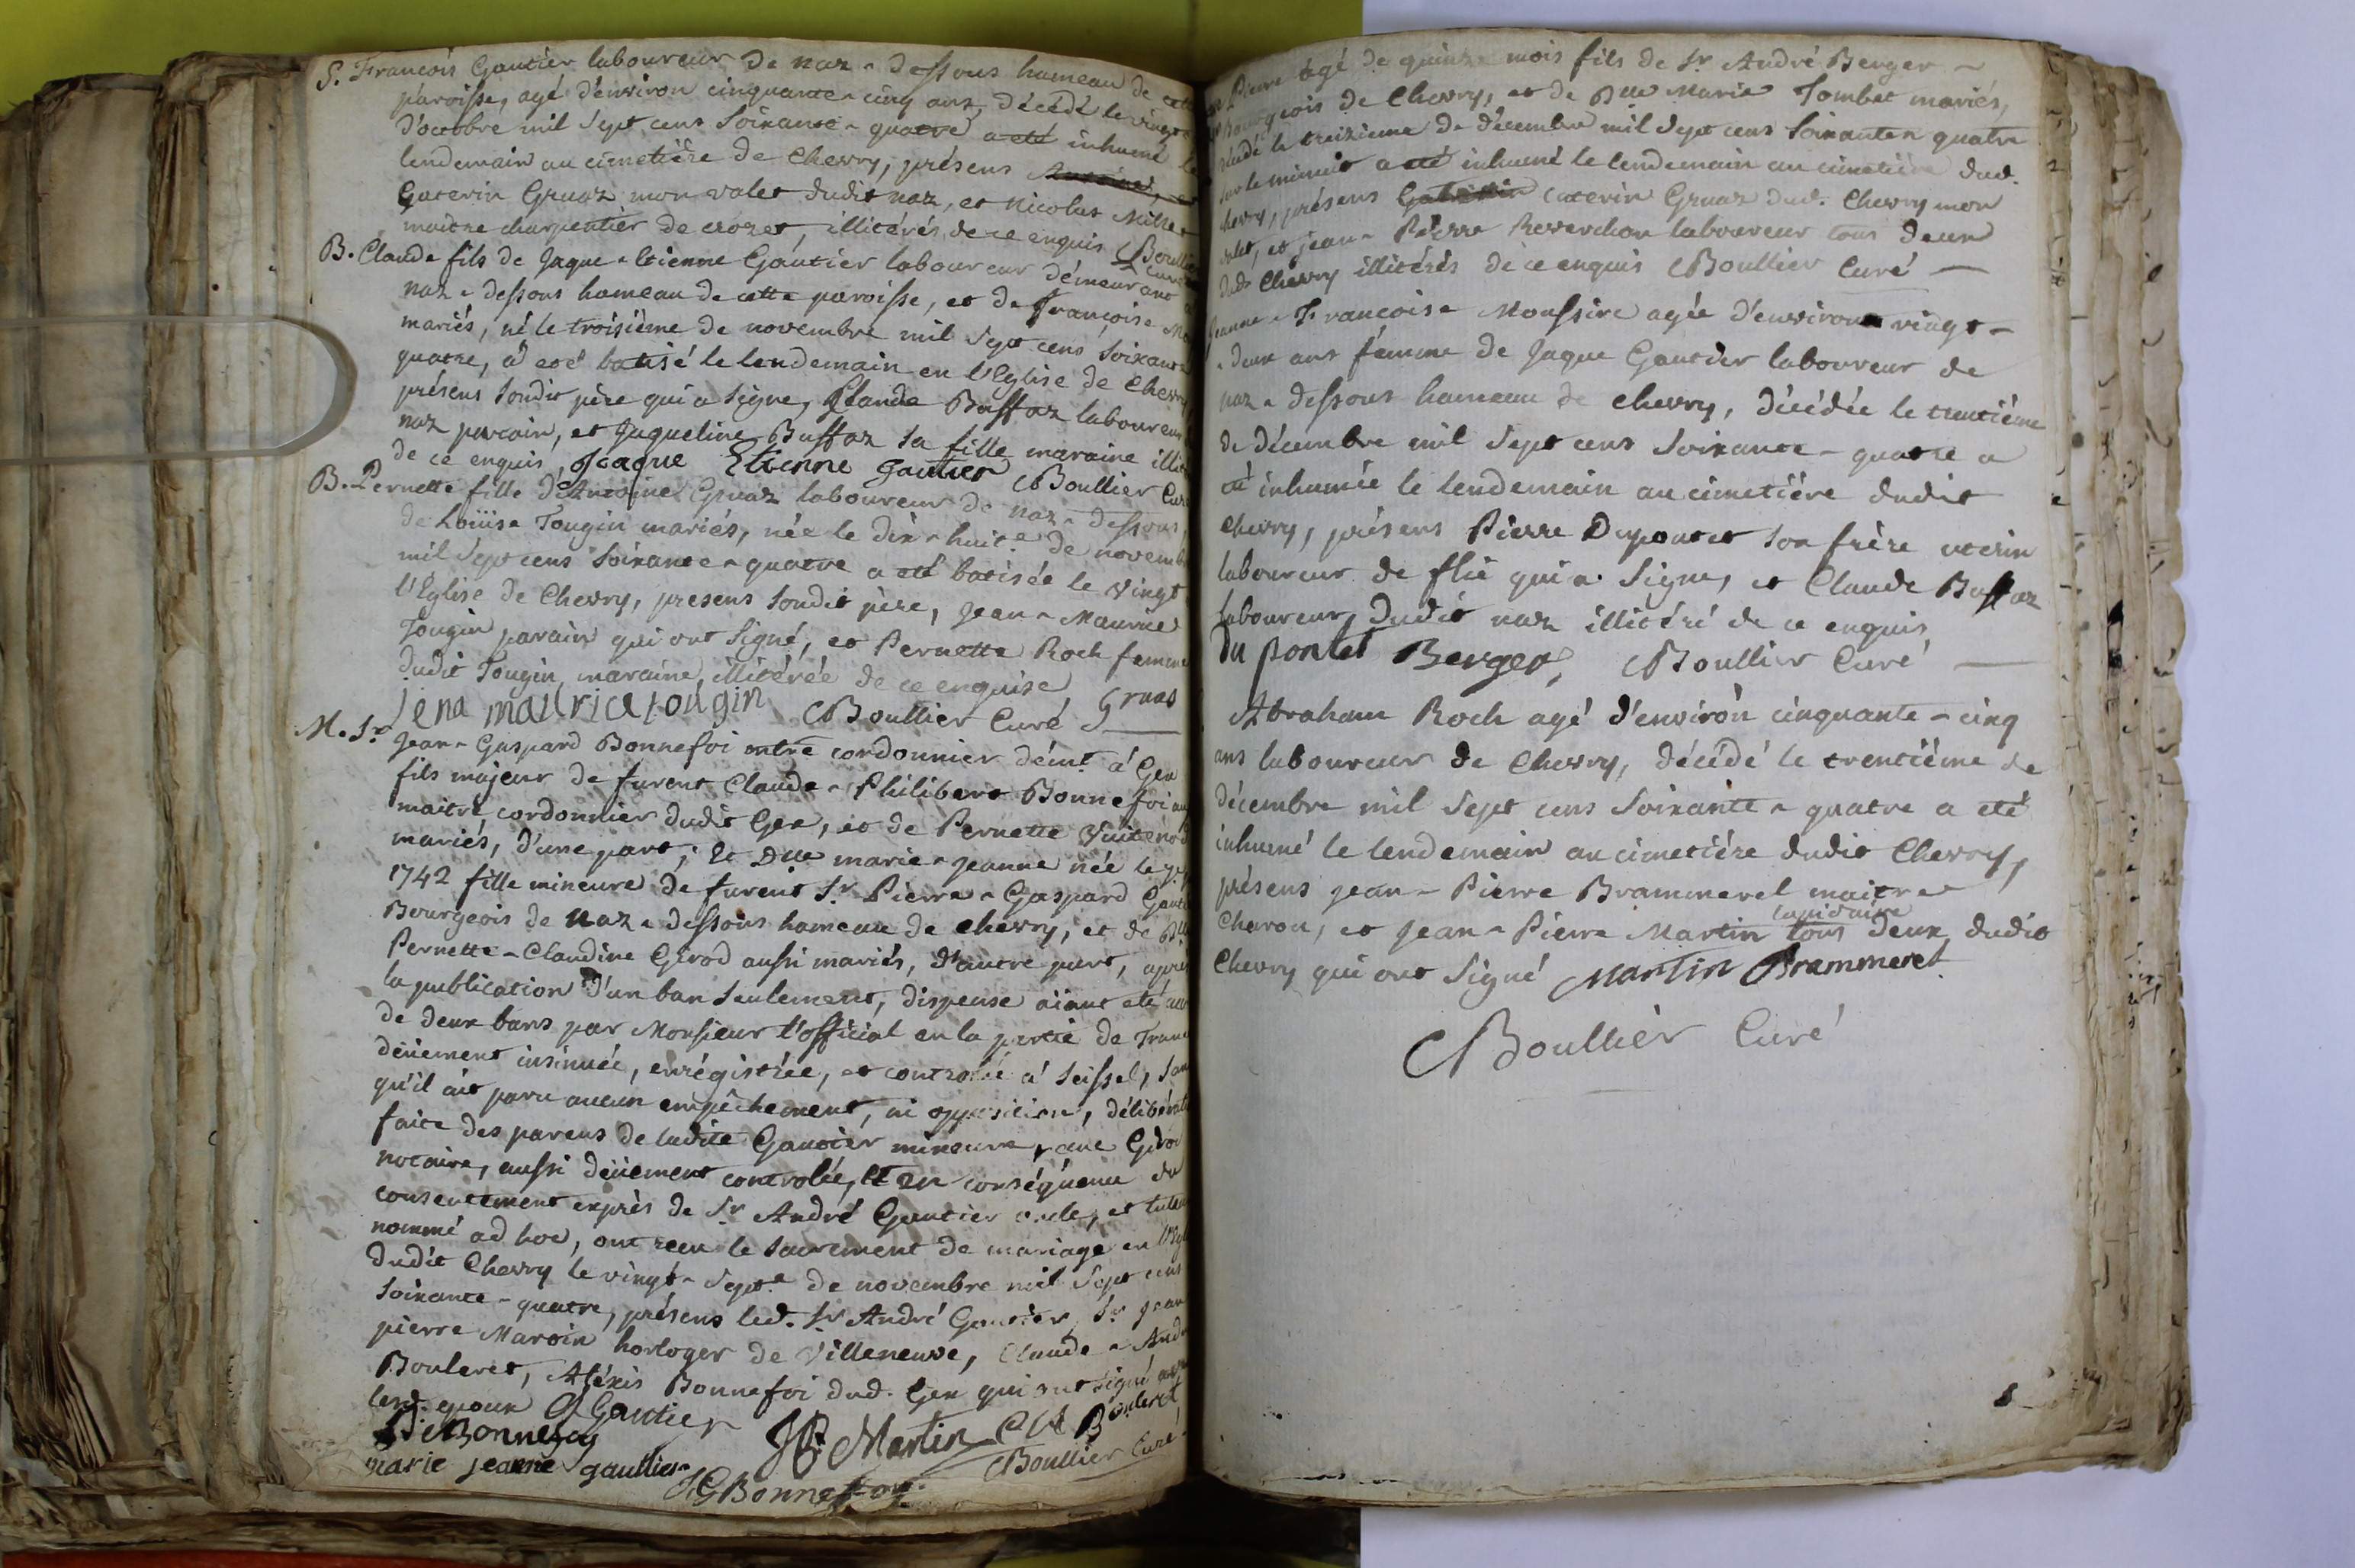 S. François Gautier laboureur de naz-dessous hameau de cette
paroisse, agé d'environ cinquante-cinq ans, décédé le vingt
d'octobre mil sept cens soixante-quatre a eté inhumé le
lendemain au cimetière de Chevry, présens
Caterin Gruaz mon valet dudit naz, et Nicolas Millet
maitre charpentier de crozet, illitérés de ce enquis Boullier
curé
B. Claude fils de Jaque-Etienne Gautier laboureur démeurant à
naz-dessous hameau de cette paroisse, et de Françoise
mariés, né le troisième de novembre mil sept cens soixante
quatre, a eté batisé le lendemain en l'Eglise de Chevry
présens soudit père qui a signé, Claude Buffaz laboureur
naz parain, et Jaqueline Buffaz sa fille maraine
de ce enquis, Jcaque Etienne gautier Boullier Curé
B. Pernette fille d'Antoine Gruaz laboureur de naz-dessous,
de Loüise Tougin mariés, née le dix-huit.e de novemb
mil sept cens soixante-quatre a eté batisée le vingt
l'Eglise de Chevry, presens soudit père, Jean-Maurice
Tougin parain qui ont signé, et Pernette Roch femme
dudit Tougin maraine, illitérée de ce enquise, Gruas
jena maurice tougin Boullier Curé
M. Sr. Jean-Gaspard Bonnefoi mtre cordonnier démt. à Gex
fils majeur de furent Claude-Philibert Bonnefoi
maitre cordonnier dudit Gex, et de Pernette
mariés, d'une part; Et Dlle marie-jeanne née le
1742 fille mineure de furent Sr. Pierre-Gaspard Gaut
Bourgeois de naz-dessous hameau de chevry, et de Dlle
Pernette-Claudine Girod aussi mariés, d'autre part, après
la publication d'un ban seulement, dispense aiant eté
de deux bans par Monsieur l'official en la partie de Franc
deüement insinuée, enrégistrée, et controlée à Seissel, san
qu'il ait paru aucun empêchement, ni opposition, délibérati
faite des parens de ladite Gautier mineure, Girod
notaire, aussi deüement controlée, et en conséquence du
consentement exprès de Sr. André Gautier oncle, et tuteu
nommé ad hoc, ont recu le sacrement de mariage en l'Egl
dudit Chevry le vingt-sept.e de novembre mil sept cens
soixante-quatre, présens led. Sr. André Gautier, Sr. Jean
pierre Martin horloger de Villeneuve, Claude-And
Bouleret, Aléxis Bonnefoi dud. Gex qui ont signé avec
lesd. epoux A Gautier
Bonnefoy JP Martin C A Bouleret
marie jeanne gauttier Boullier Curé
JG Bonnefoy
Pierre agé de quinze mois fils de Sr. André Berger
Bourgeois de Chevry, et de Dlle Marie Tombet mariés,
décédé le treizième de décembre mil sept cens soixante-quatre
sur le minuit a eté inhumé le lendemain au cimetière dud.
chevry, présens Caterin Gruaz dud. Chevry mon
valet, et jean-Pierre Reverchon laboureur tous deux
dudt Chevry illitérés de ce enquis Boullier Curé
Jeanne-Françoise Moussire agée d'environ vingt-
-deux ans fémme de Jaque Gautier laboureur de
naz-dessous hameau de chevry, décédée le trentième
de décembre mil sept cens soixante-quatre a
eté inhumée le lendemain au cimetière dudit
Chevry, présens Pierre Dupontet son frère uterin
laboureur de flié qui a signé, et Claude Buffaz
laboureur, dudit naz illitéré de ce enquis
Du pontet Berger, Boullier Curé
Abraham Roch agé d'environ cinquante-cinq
ans laboureur de Chevry, décédé le trentième de
décembre mil sept cens soixante-quatre a eté
inhumé le lendemain au cimetière dudit Chevry,
présens jean-Pierre Brammerel maitre
lapidaire
Charon, et Jean-Pierre Martin tous deux dudit
Chevry qui ont signé Martin Brammerel
Boullier Curé